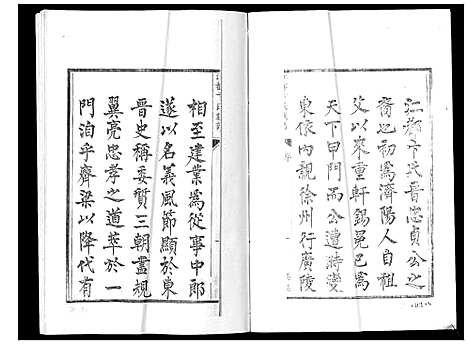 江都卞氏晉忠貞公之
裔也初為濟陽人自祖
父以來重軒錫冕已為
天下甲門而公遭時變
東依內親徐州行廣陵
相至建業為從事中郎
遂以名義風節顯於東
晉史稱委質三朝盡規
翼亮忠孝之道萃於一
門泊乎齊梁以降代有